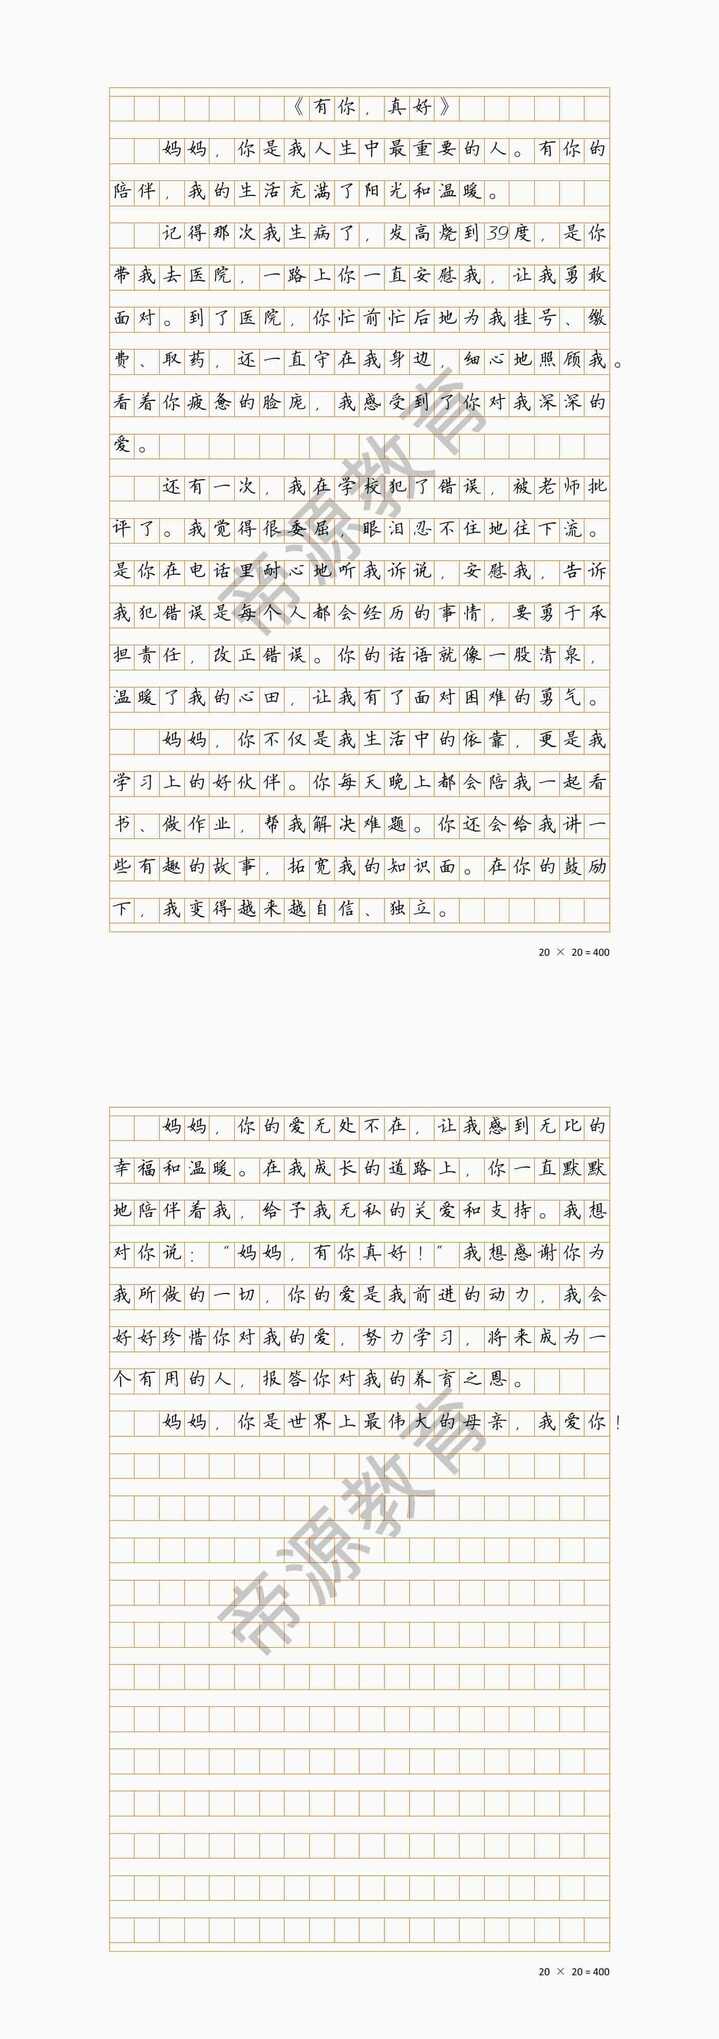 《有你，真好》
妈妈，你是我人生中最重要的人。有你的
陪伴，我的生活充满了阳光和温暖。
记得那次我生病了，发高烧到39度，是你
带我去医院，一路上你一直安慰我，让我勇敢
面对。到了医院，你忙前忙后地为我挂号、缴
费、取药，还一直守在我身边，细心地照顾我。
看着你疲惫的脸庞，我感受到了你对我深深的
爱。
还有一次，我在学校犯了错误，被老师批
评了。我觉得很委屈，眼泪忍不住地往下流。
是你在电话里耐心地听我诉说，安慰我，告诉
我犯错误是每个人都会经历的事情，要勇于承
担责任，改正错误。你的话语就像一股清泉，
温暖了我的心田，让我有了面对困难的勇气。
妈妈，你不仅是我生活中的依靠，更是我
学习上的好伙伴。你每天晚上都会陪我一起看
书、做作业，帮我解决难题。你还会给我讲一
些有趣的故事，拓宽我的知识面。在你的鼓励
下，我变得越来越自信、独立。
20 × 20=400
妈妈，你的爱无处不在，让我感到无比的
幸福和温暖。在我成长的道路上，你一直默默
地陪伴着我，给予我无私的关爱和支持。我想
对你说：“妈妈，有你真好！”我想感谢你为
我所做的一切，你的爱是我前进的动力，我会
好好珍惜你对我的爱，努力学习，将来成为一
个有用的人，报答你对我的养育之恩。
妈妈，你是世界上最伟大的母亲，我爱你！
20 × 20=400
帝源教育
帝源教育